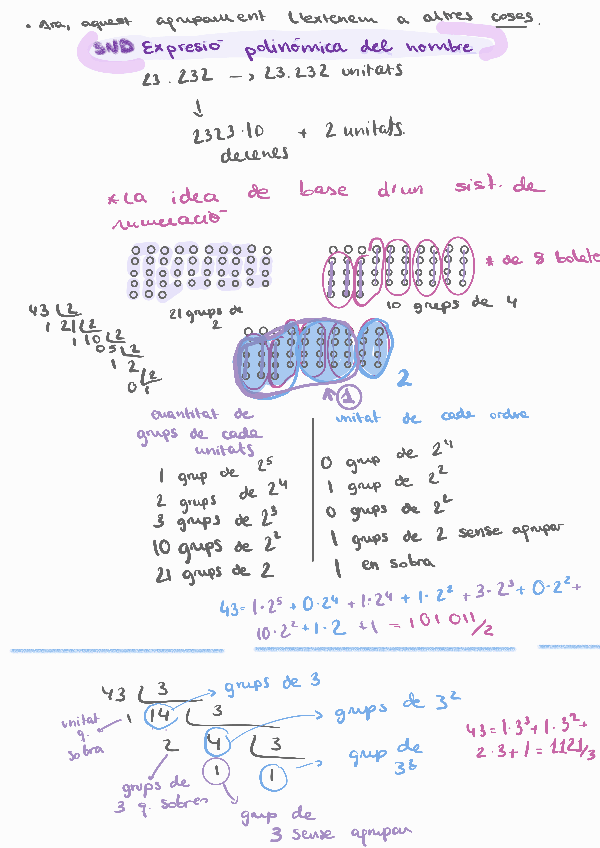 • Ara, aquest agrupament l'extenem a altres coses.
SND Expresió polinòmica del nombre
23.232 → 23.232 unitats
↓
2323·10 + 2 unitats.
decenes
*La idea de base d'un sist. de
numeració
* de 8 bolete
21 grups de
2
10 grups de 4
43 2
1 21 2
1 10 2
05 2
1 2
0 2
1
1
2
cuantitat de
grups de cada
unitats
1 grup de 2⁵
2 grups de 2⁴
3 grups de 2³
10 grups de 2²
21 grups de 2
unitat de cada ordre
0 grup de 2⁴
1 grup de 2²
0 grups de 2²
1 grups de 2 sense agrupar
1 en sobra
43= 1·2⁵ + 0·2⁴ + 1·2⁴ + 1·2² + 3·2³ + 0·2² +
10·2² + 1·2 + 1 = 101011/2
43 3
1 14 3
2 4 3
1 1
grups de 3
grups de 3²
grup de
3³
unitat
q.
sobra
grups de
3 q. sobres
grup de
3 sense agrupar
43=1·3³+1·3²+
2·3+1=1121/3